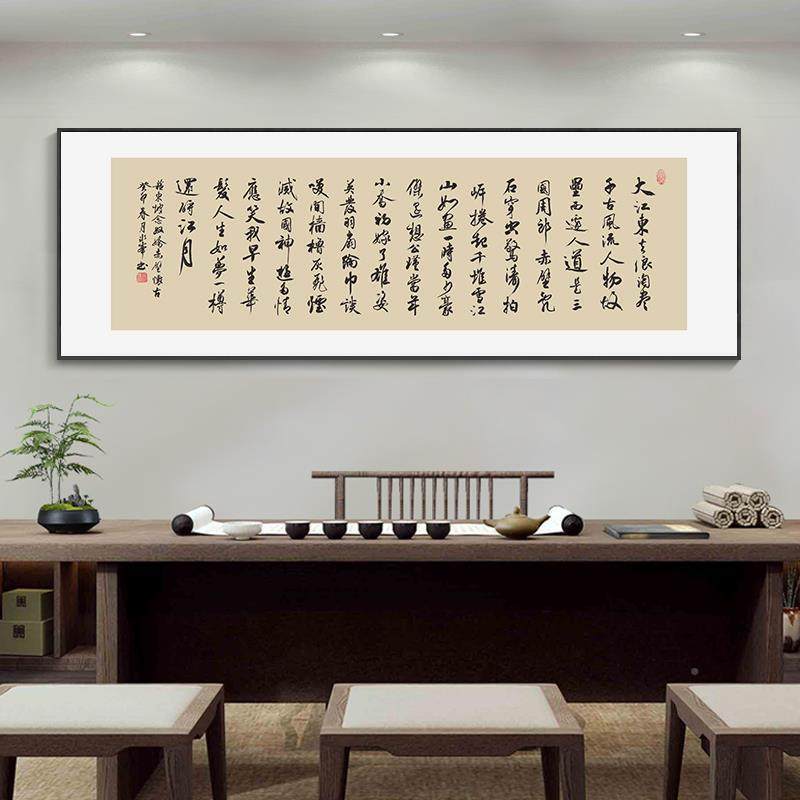 大江東去浪淘盡
千古風流人物故
壘西邊人道是三
國周郎赤壁亂
石穿空驚濤拍
岸捲起千堆雪江
山如畫一時多少豪
傑遙想公瑾當年
小喬初嫁了雄姿
英發羽扇綸巾談
笑間檣櫓灰飛煙
滅故國神遊多情
應笑我早生華
髮人生如夢一樽
還酹江月
蘇東坡念奴嬌赤壁懷古
癸卯春月書